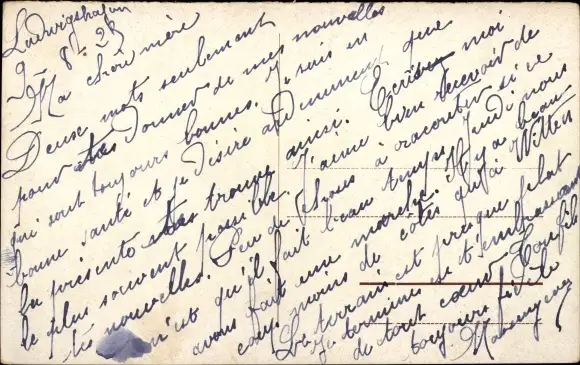 Ludwigshafen
8 - 23
Ma chère mère
Deux mots seulement
pour te donner de mes nouvelles
qui sont toujours bonnes. Je suis en
bonne santé et je désire que
la présente te trouve ainsi. Ecrives moi
le plus souvent possible. J'aime bien recevoir de
tes nouvelles. Peu de choses à raconter si ce
n'est qu'il fait beau temps. Jeudi nous
avons fait une marche. Il y a beau-
coup moins de côtes qu'à Witten
Le terrain est presque plat
Je termine en t'embrassant
de tout cœur Ton fils
toujours fidèle